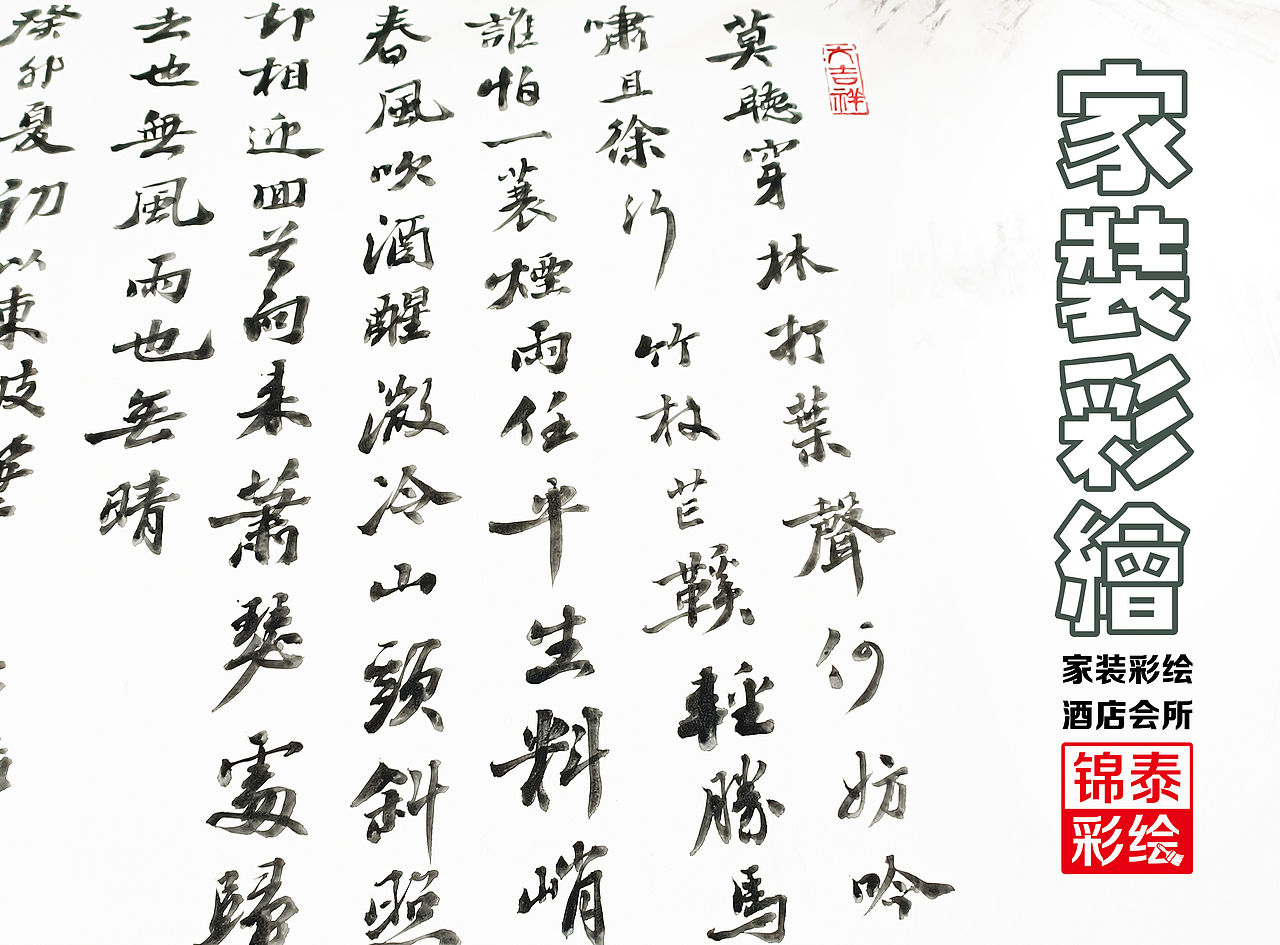 家裝彩繪
家装彩绘
酒店会所
锦泰
彩绘
大吉祥
莫聴穿林打葉聲何妨吟
嘯且徐行竹杖芒鞵輕勝馬
誰怕一蓑煙雨任平生料峭
春風吹酒醒微冷山頭斜照
却相迎回首向来蕭瑟處歸
去也無風雨也無晴
癸卯夏初以東坡筆